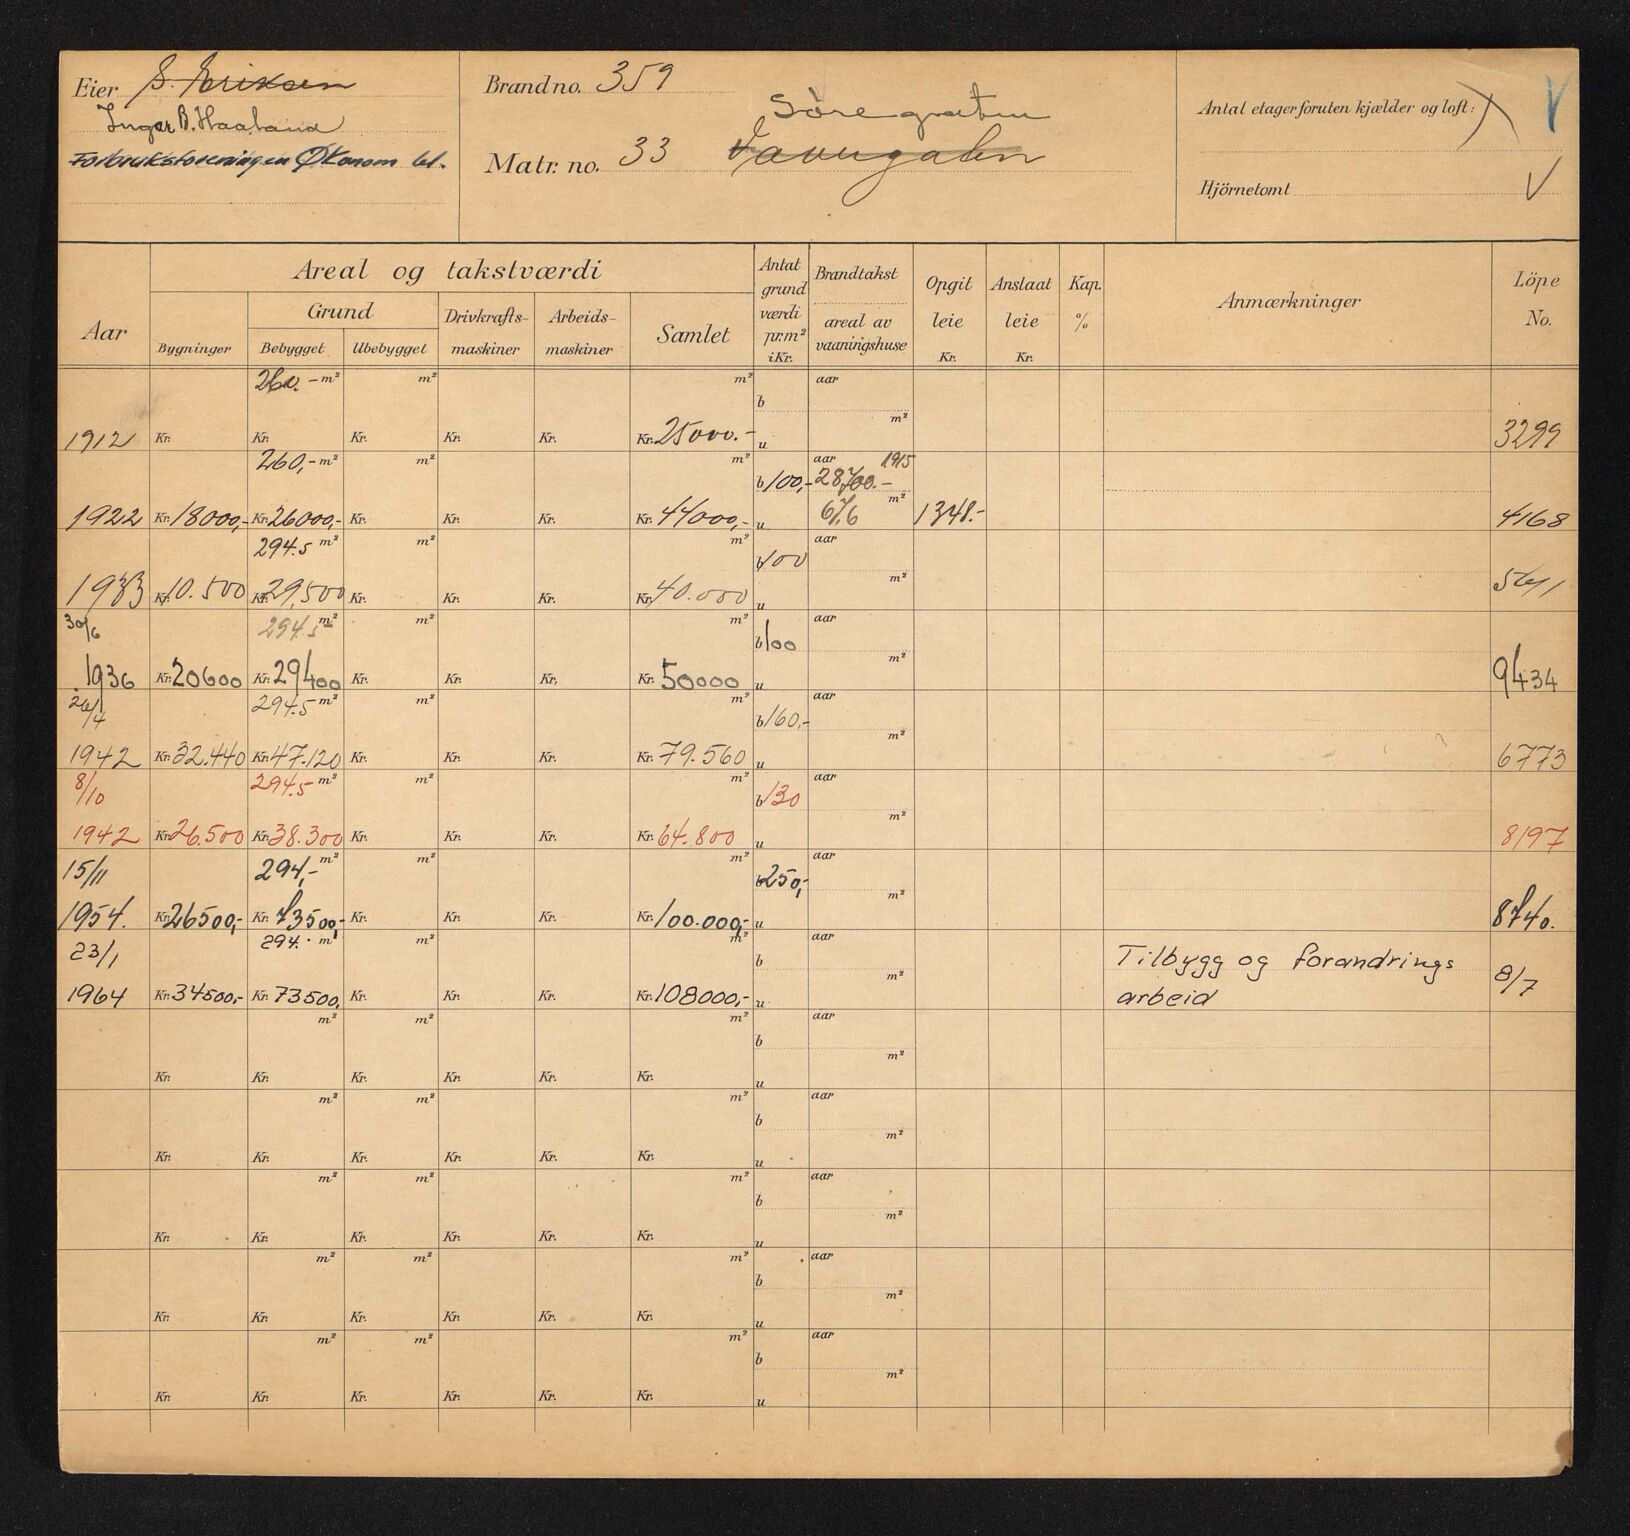 Eier S. Eriksen
Inger B. Haaland
Forbruksforeningen Økonom bl.
Brand no. 359
Søregaten
Matr. no. 33
Antal etager foruten kjælder og loft:
Hjörnetomt
Aar
Areal og takstværdi
Grund
Bygninger
Bebygget
Ubebygget
Drivkrafts-maskiner
Arbeids-maskiner
Samlet
Antat grund værdi pr. m² i Kr.
Brandtakst
areal av vaaningshuse
Opgit leie Kr.
Anslaat leie Kr.
Kap. %
Anmærkninger
Löpe No.
260.- m² m² m² b aar m²
1912 Kr. Kr. Kr. Kr. Kr. Kr. 25000.- u 3299
260,- m² m² m² b 100,- aar 1915 28700.- m²
1922 Kr. 18000,- Kr. 26000,- Kr. Kr. Kr. Kr. 44000,- u 67.6 1348.- 4168
294.5 m² m² m² b 100 aar m²
1933 Kr. 10.500 Kr. 29,500 Kr. Kr. Kr. Kr. 40.000 u 5611
30/6 294.5 m² m² m² b 100 aar m²
1936 Kr. 20600 Kr. 29400 Kr. Kr. Kr. Kr. 50000 u 9434
294.5 m² m² m² b 160,- aar m²
1942 Kr. 32.440 Kr. 47.120 Kr. Kr. Kr. Kr. 79.560 u 6773
8/10 294.5 m² m² m² b 130 aar m²
1942 Kr. 26.500 Kr. 38.300 Kr. Kr. Kr. Kr. 64.800 u 8197
15/11 294,- m² m² m² b 250,- aar m²
1954. Kr. 26500,- Kr. 73500,- Kr. Kr. Kr. Kr. 100.000,- u 8740.
23/1 294. m² m² m² b aar m² Tilbygg og forandrings
1964 Kr. 34500,- Kr. 73500, Kr. Kr. Kr. Kr. 108000,- u arbeid 8/7
m² m² m² b aar m²
Kr. Kr. Kr. Kr. Kr. Kr. u
m² m² m² b aar m²
Kr. Kr. Kr. Kr. Kr. Kr. u
m² m² m² b aar m²
Kr. Kr. Kr. Kr. Kr. Kr. u
m² m² m² b aar m²
Kr. Kr. Kr. Kr. Kr. Kr. u
m² m² m² b aar m²
Kr. Kr. Kr. Kr. Kr. Kr. u